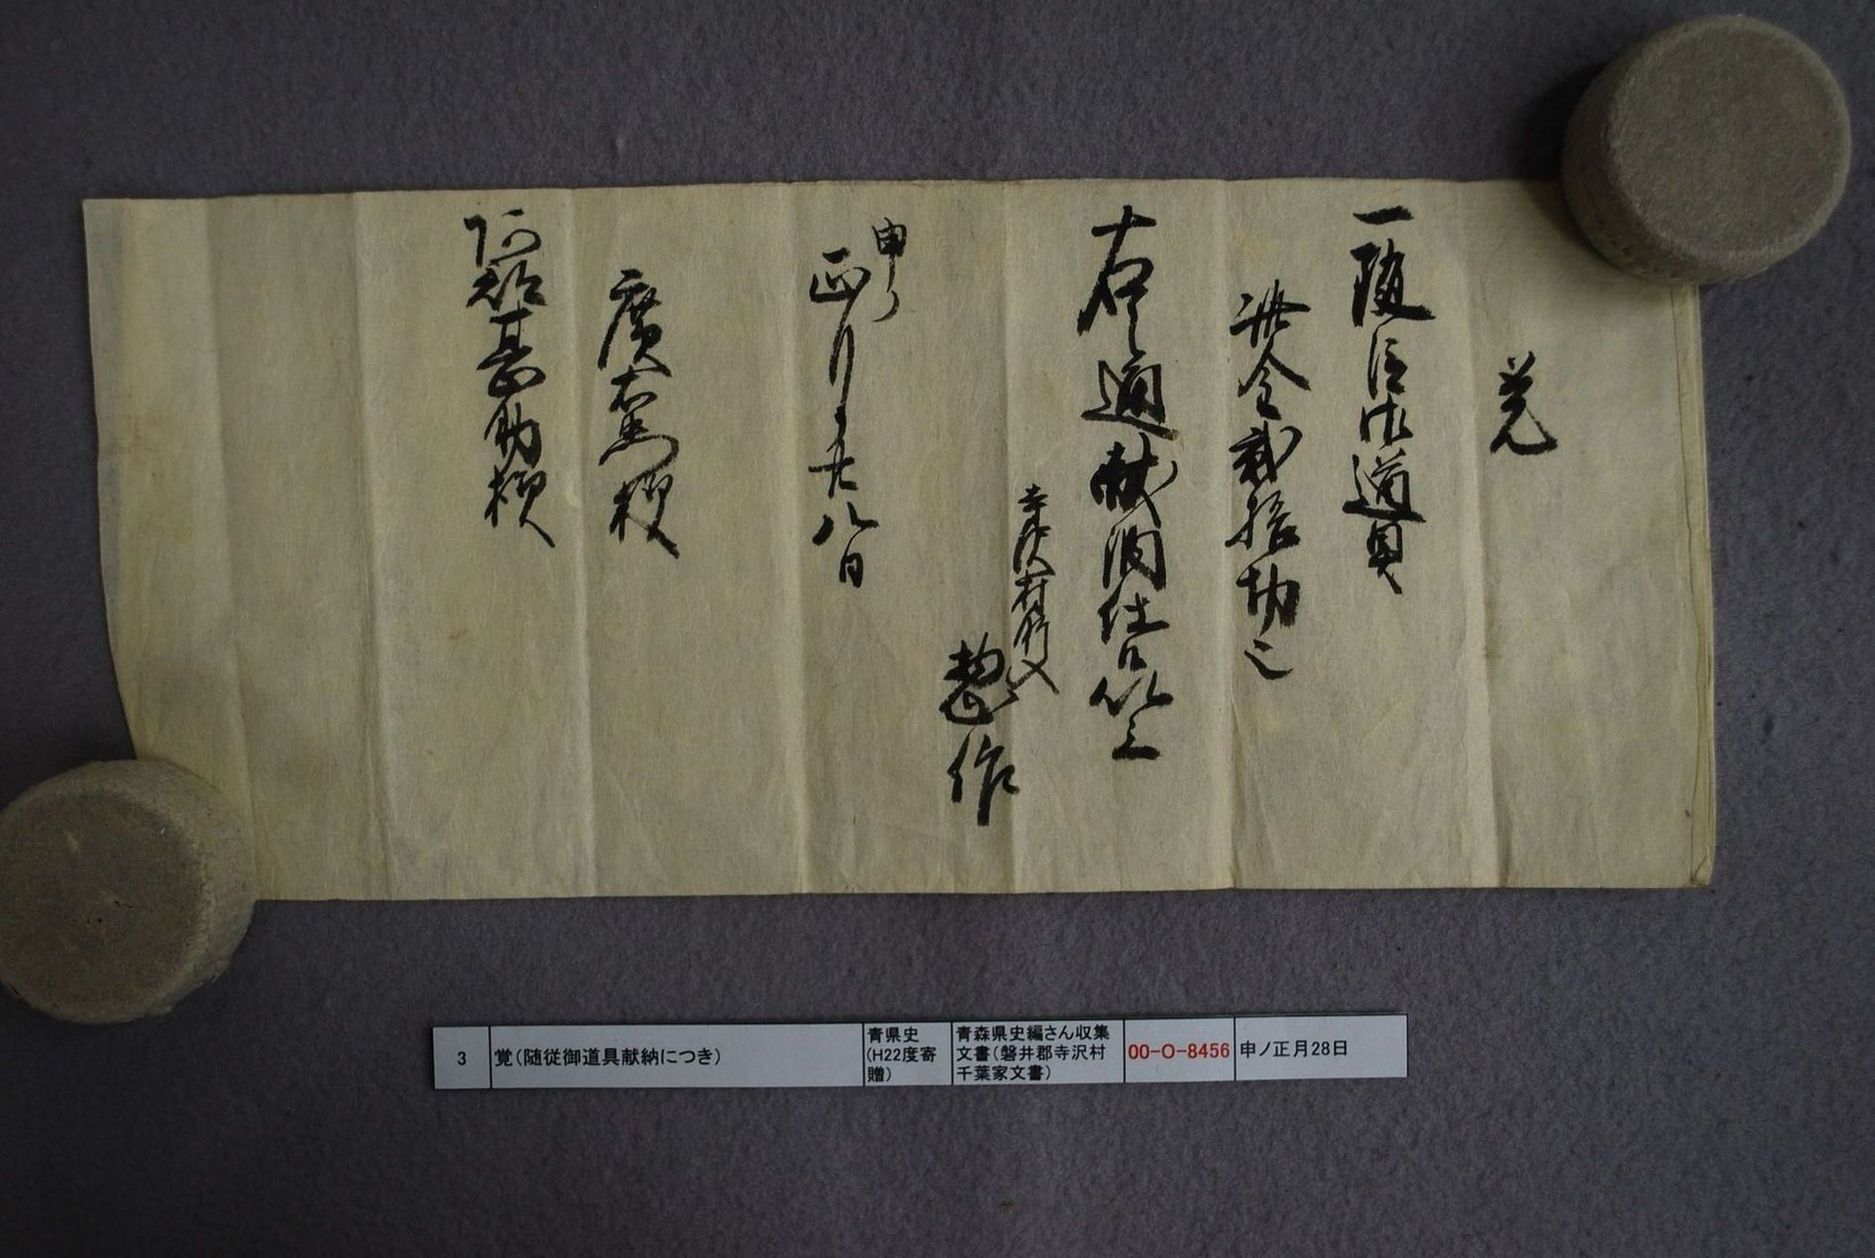 覚
一随従御道具
此金弐拾切也
右之通献納仕候以上
寺沢村肝入
惣作
申ノ
正月廿八日
廣右馬様
阿部甚助様
3
覚（随従御道具献納につき）
青県史
（H22度寄
贈）
青森県史編さん収集
文書（磐井郡寺沢村
千葉家文書）
00-O-8456
申ノ正月28日